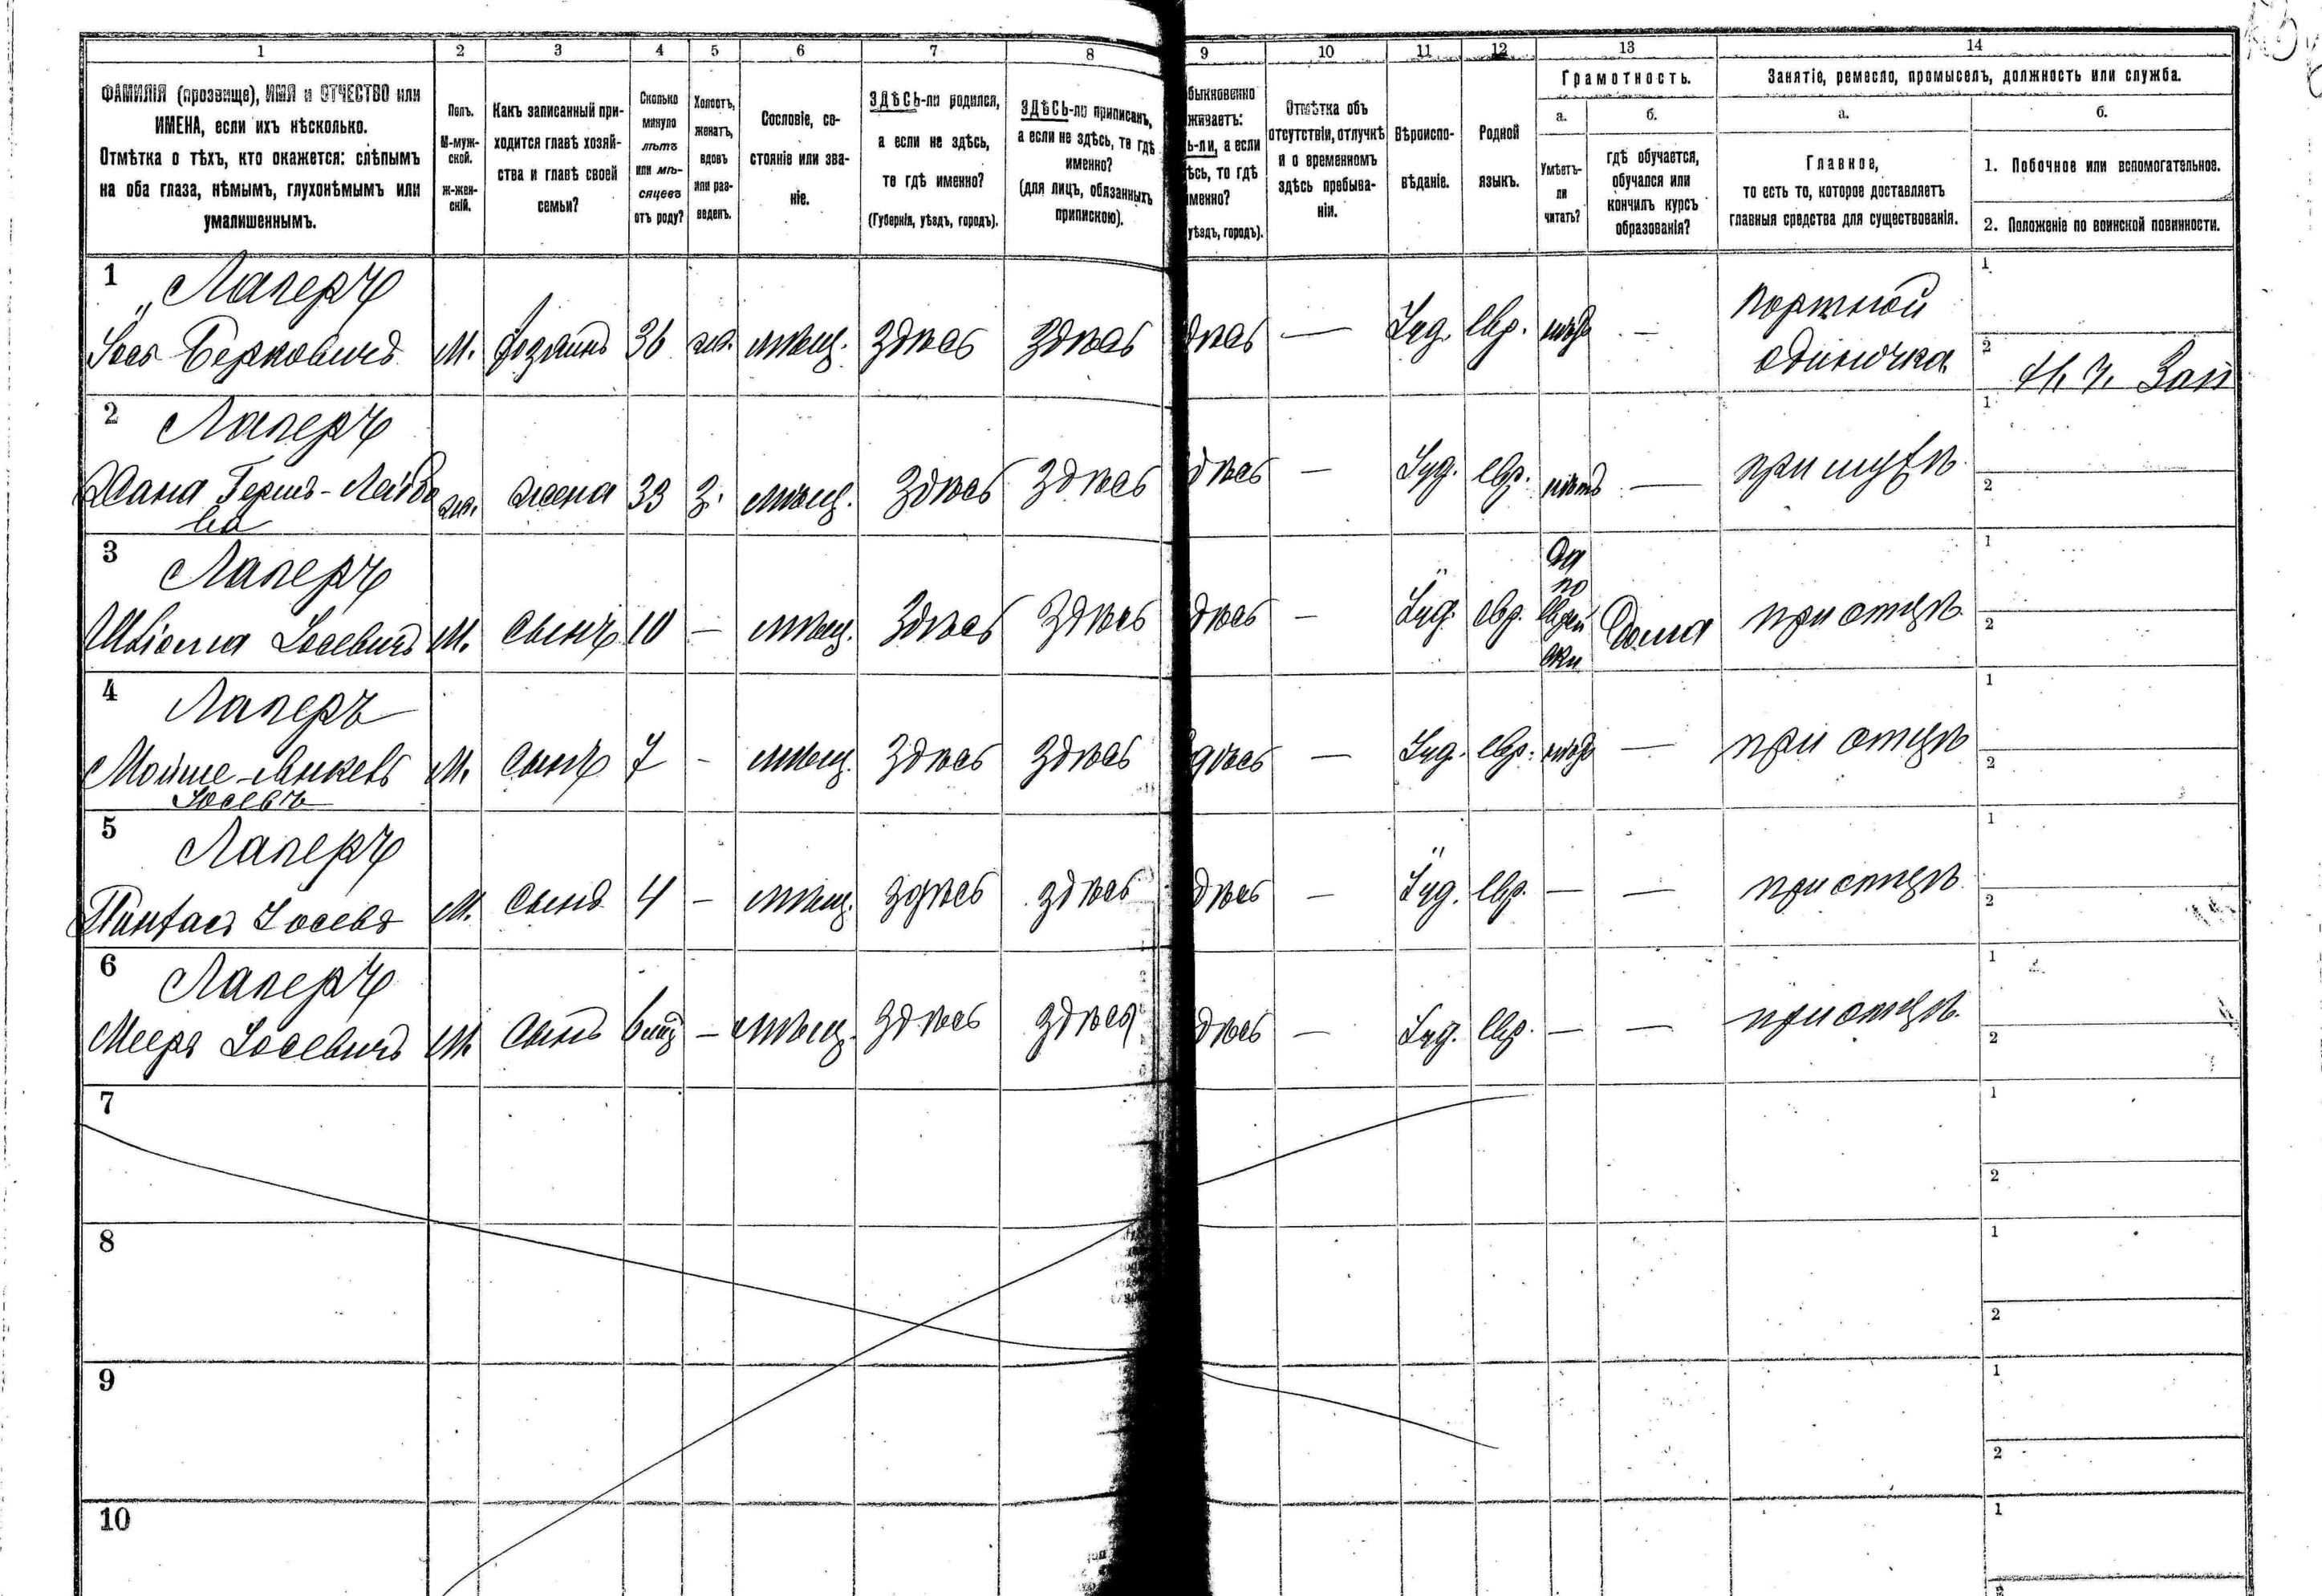 1 2 3 4 5 6 7 8 9 10 11 12 13 14
ФАМИЛІЯ (прозвище), ИМЯ и ОТЧЕСТВО или
ИМЕНА, если ихъ нѣсколько.
Отмѣтка о тѣхъ, кто окажется: слѣпымъ
на оба глаза, нѣмымъ, глухонѣмымъ или
умалишеннымъ.
Полъ.
М-муж-
ской.
ж-жен-
скій.
Какъ записанный при-
ходится главѣ хозяй-
ства и главѣ своей
семьи?
Сколько
минуло
лѣтъ
или мѣ-
сяцевъ
отъ роду?
Холостъ,
женатъ,
вдовъ
или раз-
веденъ.
Сословіе, со-
стояніе или зва-
ніе.
ЗДѢСЬ-ли родился,
а если не здѣсь,
то гдѣ именно?
(Губернія, уѣздъ, городъ).
ЗДѢСЬ-ли приписанъ,
а если не здѣсь, то гдѣ
именно?
(для лицъ, обязанныхъ
припискою).
быкновенно
живаетъ:
ь-ли, а если
ѣсь, то гдѣ
менно?
уѣздъ, городъ).
Отмѣтка объ
отсутствіи, отлучкѣ
и о временномъ
здѣсь пребыва-
ніи.
Вѣроиспо-
вѣданіе.
Родной
языкъ.
Грамотность.
а.
Умѣетъ-
ли
читать?
б.
гдѣ обучается,
обучался или
кончилъ курсъ
образованія?
Занятіе, ремесло, промыселъ, должность или служба.
а.
Главное,
то есть то, которое доставляетъ
главныя средства для существованія.
б.
1. Побочное или вспомогательное.
2. Положеніе по воинской повинности.
1 Лаперъ портной 1
Іось Берковичъ М. хозяинъ 36 жен. мѣщ. здѣсь здѣсь дѣсь — Іуд. евр. нѣтъ — одиночка 2
2 Лаперъ 1
Хана Гершъ-Лейбо ж. жена 33 з. мѣщ. здѣсь здѣсь дѣсь — Іуд. евр. нѣтъ — при мужѣ 2
ва
3 Лаперъ да 1
по
Іосевичъ М. сынъ 10 — мѣщ. здѣсь здѣсь дѣсь — Іуд. евр. еврей дома при отцѣ 2
ски
4 Лаперъ 1
Мойше-Янкевъ М. сынъ 7 - мѣщ. здѣсь здѣсь дѣсь — Іуд. евр. нѣтъ — при отцѣ 2
Іосевъ
5 Лаперъ 1
Пинхасъ Іосевъ М. сынъ 4 - мѣщ. здѣсь здѣсь дѣсь — Іуд. евр. — — при отцѣ 2
6 Лаперъ 1
Мееръ Іосевичъ М. сынъ — мѣщ. здѣсь здѣсь дѣсь — Іуд. евр. — — при отцѣ 2
7 1
2
8 1
2
9 1
2
10 1